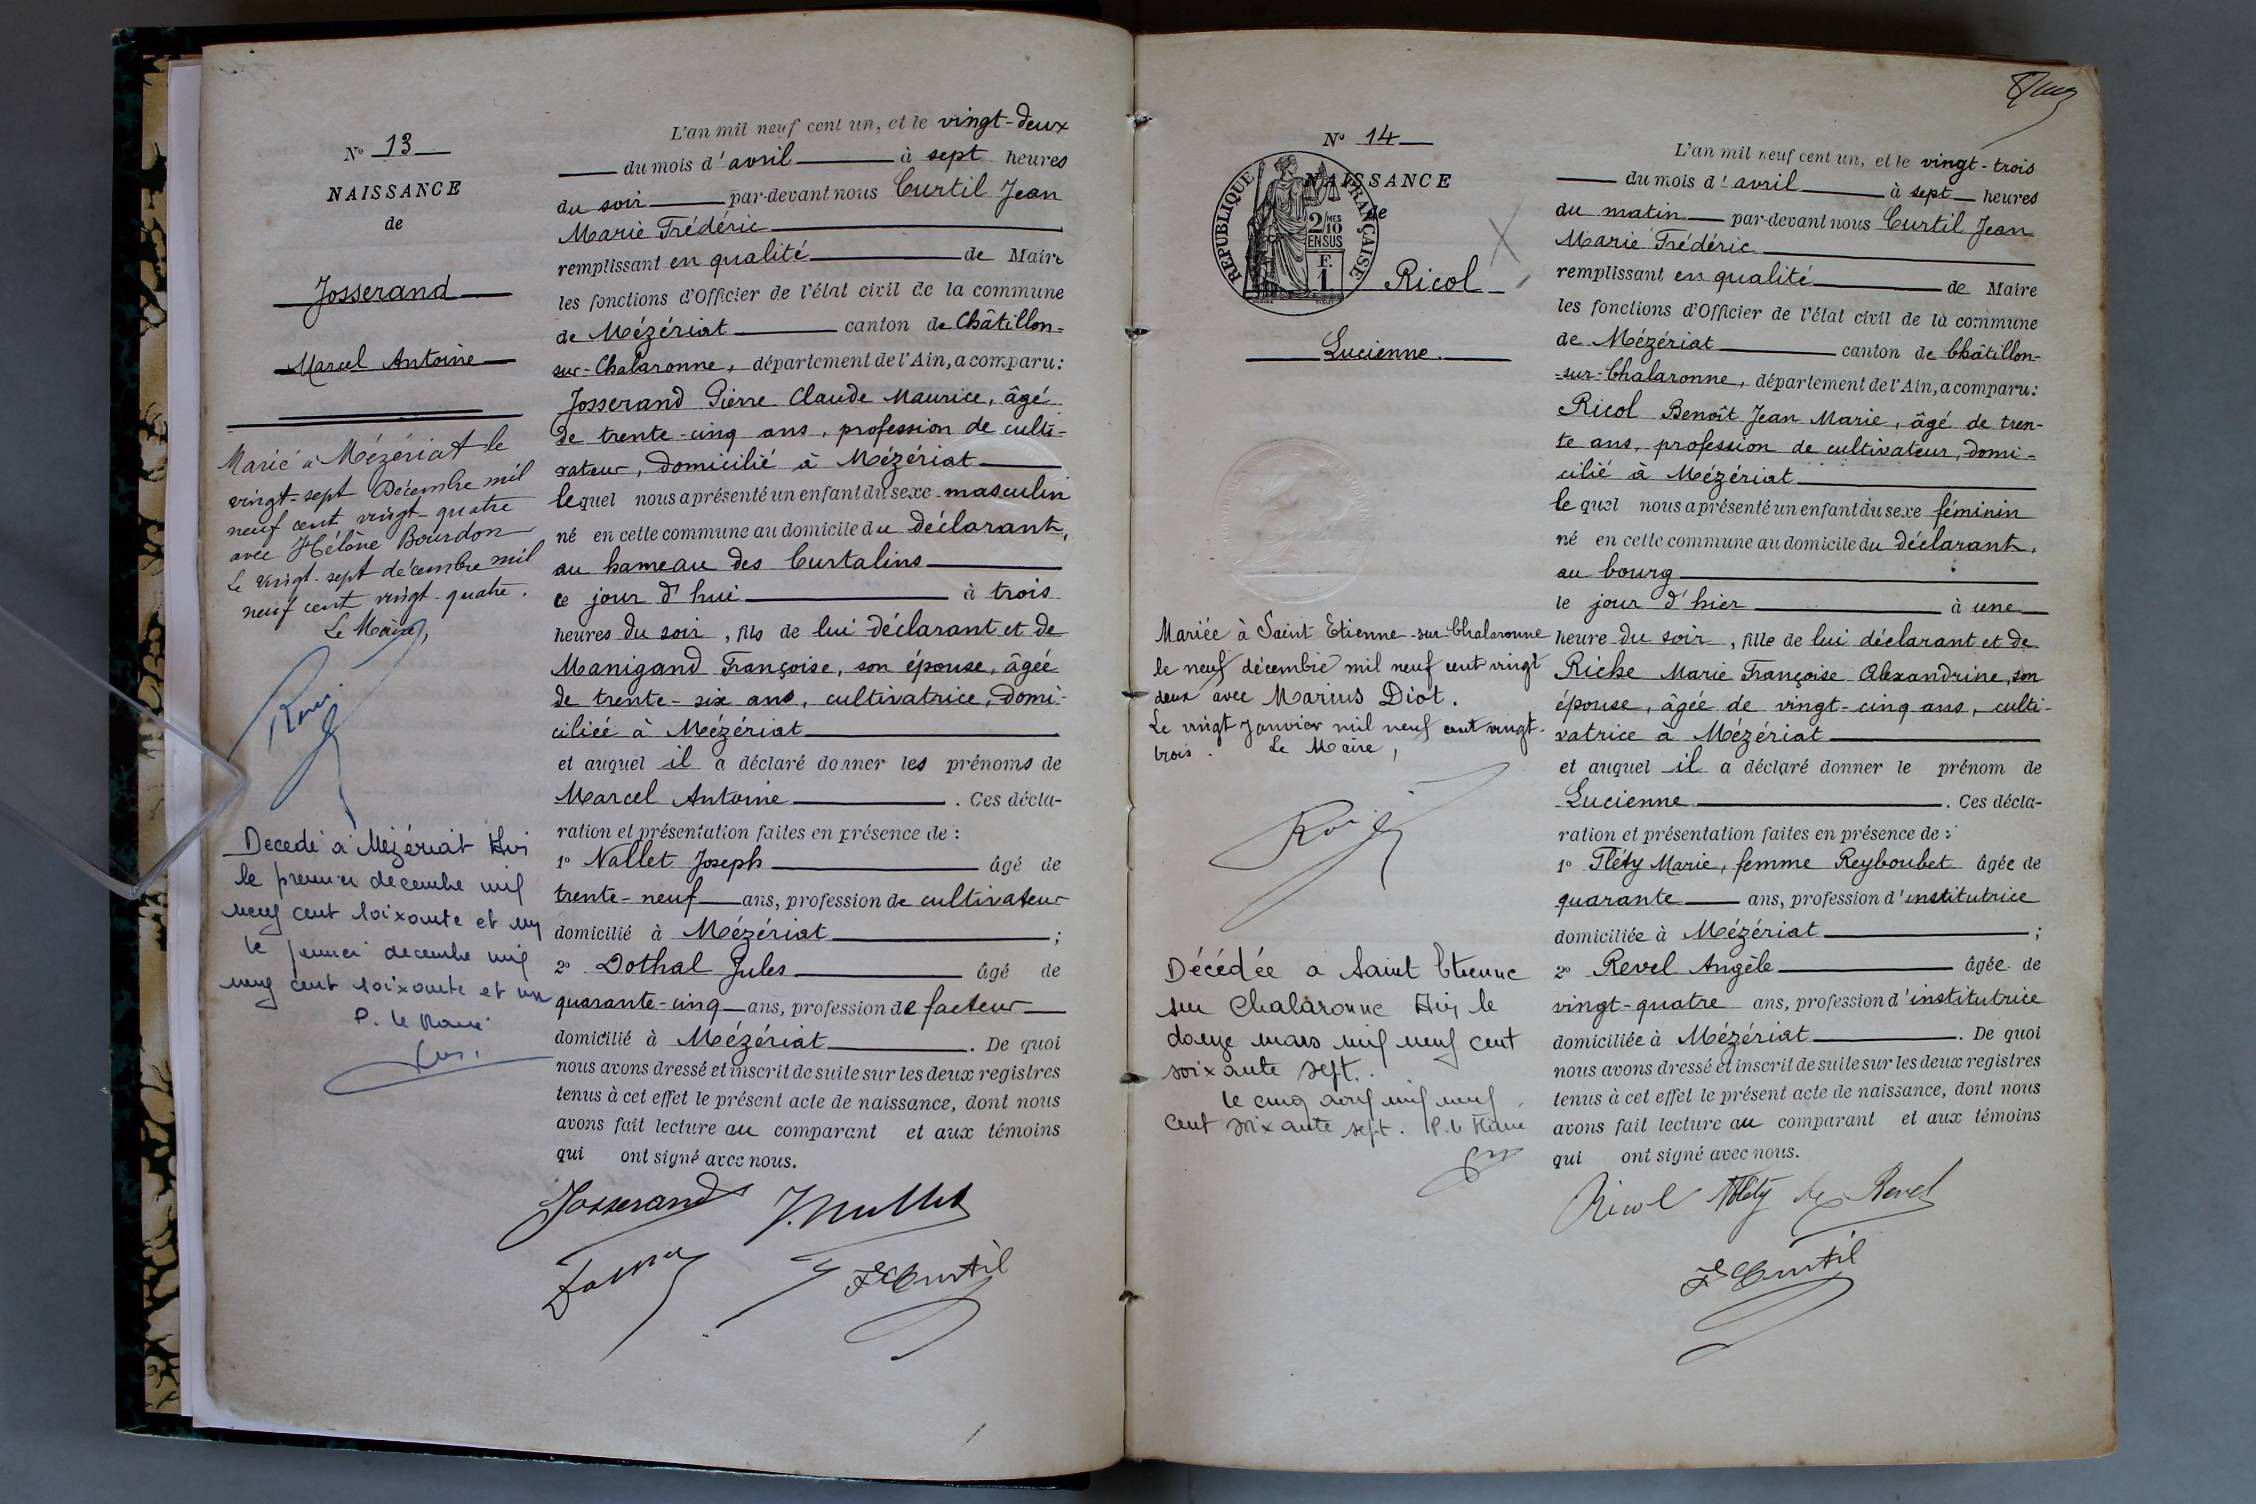 N° 13
NAISSANCE
de
Josserand
Marcel Antoine
Marié à Mézériat le
vingt-sept Décembre mil
neuf cent vingt-quatre
avec Hélène Bourdon
Le vingt-sept décembre mil
neuf cent vingt-quatre.
Le Maire,
Décédé à Mézériat Ain
le premier decembre mil
neuf cent soixante et un
le premier decembre mil
neuf cent soixante et un
P. le Maire
L'an mil neuf cent un, et le vingt-deux
du mois d'avril à sept heures
du soir par-devant nous Curtil Jean
Marie Frédéric
remplissant en qualité de Maire
les fonctions d'Officier de l'état civil de la commune
de Mézériat canton de Châtillon-
sur-Chalaronne, département de l'Ain, a comparu:
Josserand Pierre Claude Maurice, âgé
de trente-cinq ans, profession de culti-
vateur, domicilié à Mézériat
lequel nous a présenté un enfant du sexe masculin
né en cette commune au domicile du déclarant,
au hameau des Curtalins
ce jour d'hui à trois
heures du soir, fils de lui déclarant et de
Manigand Françoise, son épouse, âgée
de trente-six ans, cultivatrice, domi-
ciliée à Mézériat
et auquel il a déclaré donner les prénoms de
Marcel Antoine. Ces décla-
ration et présentation faites en présence de:
1° Nallet Joseph âgé de
trente-neuf ans, profession de cultivateur
domicilié à Mézériat;
2° Dothal Jules âgé de
quarante-cinq ans, profession de facteur
domicilié à Mézériat. De quoi
nous avons dressé et inscrit de suite sur les deux registres
tenus à cet effet le présent acte de naissance, dont nous
avons fait lecture au comparant et aux témoins
qui ont signé avec nous.
Josserand J. Nallet
Curtil
N° 14
NAISSANCE
de
RÉPUBLIQUE FRANÇAISE
2/10 MES
EN SUS
F.
1
Ricol
Lucienne.
Mariée à Saint Etienne-sur-Chalaronne
le neuf décembre mil neuf cent vingt
deux avec Marius Diot.
Le vingt Janvier mil neuf cent vingt-
trois. Le Maire,
Décédée a Saint Etienne
sur Chalaronne Ain le
douze mars mil neuf cent
soixante sept.
le cinq avril mil neuf
cent soixante sept. P. le Maire
L'an mil neuf cent un, et le vingt-trois
du mois d'avril à sept heures
du matin par-devant nous Curtil Jean
Marie Frédéric
remplissant en qualité de Maire
les fonctions d'Officier de l'état civil de la commune
de Mézériat canton de Châtillon-
-sur-Chalaronne, département de l'Ain, a comparu:
Ricol Benoît Jean Marie, âgé de tren-
te ans, profession de cultivateur, domi-
cilié à Mézériat
lequel nous a présenté un enfant du sexe féminin
né en cette commune au domicile du déclarant,
au bourg
le jour d'hier à une
heure du soir, fille de lui déclarant et de
Riche Marie Françoise Alexandrine, son
épouse, âgée de vingt-cinq ans, culti-
vatrice à Mézériat
et auquel il a déclaré donner le prénom de
Lucienne. Ces décla-
ration et présentation faites en présence de:
1° Fléty Marie, femme Reyboubet âgée de
quarante ans, profession d'institutrice
domiciliée à Mézériat;
2° Revel Angèle âgée de
vingt-quatre ans, profession d'institutrice
domiciliée à Mézériat. De quoi
nous avons dressé et inscrit de suite sur les deux registres
tenus à cet effet le présent acte de naissance, dont nous
avons fait lecture au comparant et aux témoins
qui ont signé avec nous.
Ricol Fléty Revel
Curtil